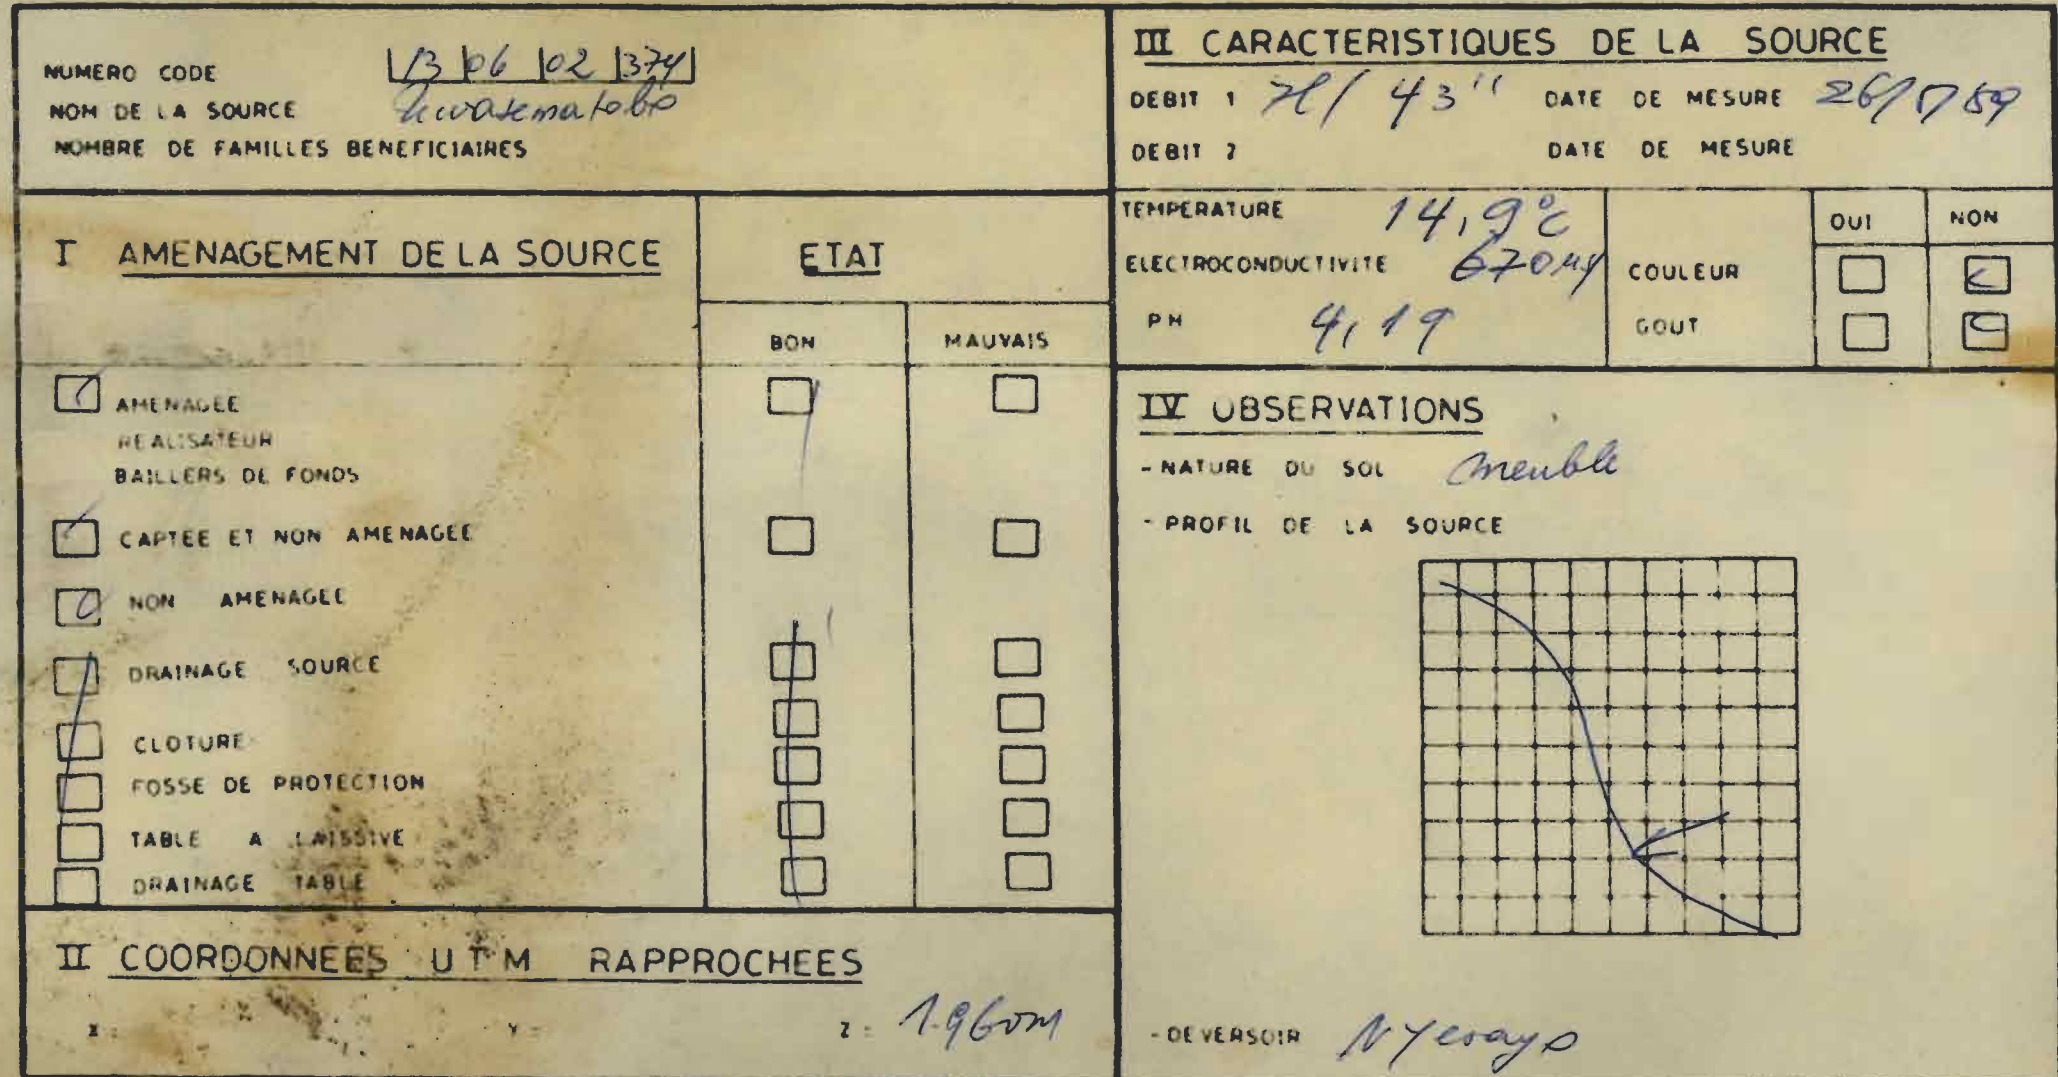 NUMERO CODE |13|06|02|374|
NOM DE LA SOURCE
NOMBRE DE FAMILLES BENEFICIAIRES
I AMENAGEMENT DE LA SOURCE
ETAT
BON MAUVAIS
AMENAGEE
REALISATEUR
BAILLERS DE FONDS
CAPTEE ET NON AMENAGEE
NON AMENAGEE
DRAINAGE SOURCE
CLOTURE
FOSSE DE PROTECTION
TABLE A LAISSIVE
DRAINAGE TABLE
II COORDONNEES UTM RAPPROCHEES
X : Y = Z = 1.960m
III CARACTERISTIQUES DE LA SOURCE
DEBIT 1 7l/43'' DATE DE MESURE
DEBIT 2 DATE DE MESURE
TEMPERATURE 14,9°C
ELECTROCONDUCTIVITE 670
PH 4,19
OUI NON
COULEUR
GOUT
IV OBSERVATIONS
- NATURE DU SOL meuble
- PROFIL DE LA SOURCE
- DEVERSOIR